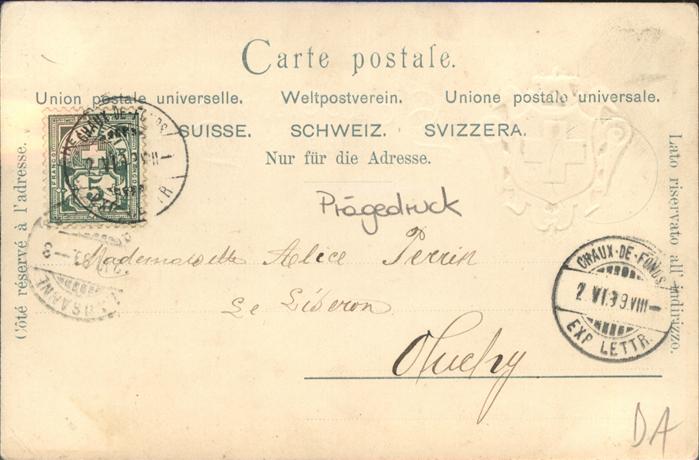 Carte postale.
Union postale universelle. Weltpostverein. Unione postale universale.
SUISSE. SCHWEIZ. SVIZZERA.
Nur für die Adresse.
Côté réservé à l'adresse.
Lato riservato all' indirizzo.
Prägedruck
FRANCO
5
Mademoiselle Alice Perrin
Le Liseron
Ouchy
CHAUX-DE-FONDS
EXP. LETTR.
DA